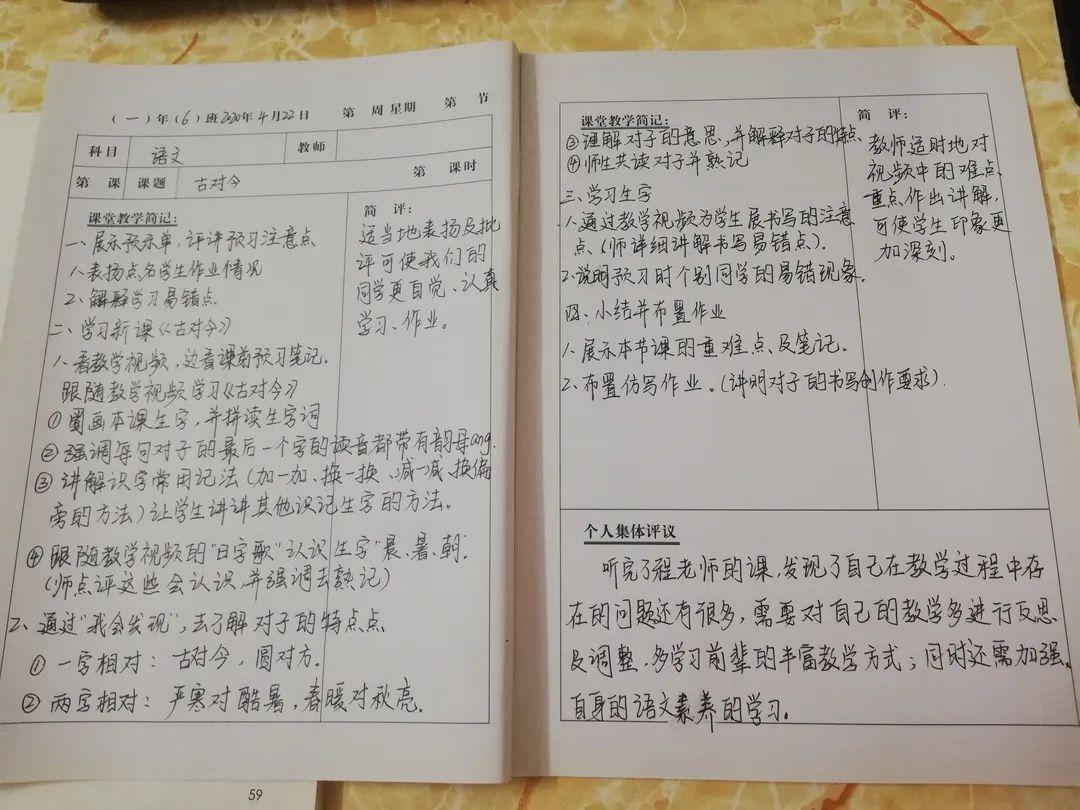 （一）年（6）班2020年4月22日 第 周 星期 第 节
科目 语文 教师
第 课 课题 古对今 第 课时
课堂教学简记：
一、展示预示单，评讲预习注意点
1、表扬点名学生作业情况
2、解释学习易错点
二、学习新课《古对今》
1、看教学视频，边看课前预习笔记.
跟随教学视频学习《古对今》
①圈画本课生字，并拼读生字词
②强调每句对子的最后一个字的读音都带有韵母ang.
③讲解识字常用记法（加一加、换一换、减一减、换偏
旁的方法）让学生讲讲其他识记生字的方法。
④跟随教学视频的"日字歌"认识生字"晨、暑、朝".
（师点评这些会认识，并强调去熟记）
2、通过"我会发现"，去了解对子的特点点
①一字相对：古对今，圆对方.
②两字相对：严寒对酷暑，春暖对秋亮.
简 评：
适当地表扬及批
评可使我们的
同学更自觉、认真
学习、作业。
59
课堂教学简记：
③理解对子的意思，并解释对子的特点
④师生共读对子并熟记
三、学习生字
1、通过教学视频为学生展书写的注意
点（师详细讲解书写易错点）.
2、说明预习时个别同学的易错现象.
四、小结并布置作业
1、展示本节课的重难点及笔记.
2、布置仿写作业。（讲明对子的书写创作要求）.
简 评：
教师适时地对
视频中的难点、
重点作出讲解，
可使学生印象更
加深刻。
个人集体评议
听完了程老师的课，发现了自己在教学过程中存
在的问题还有很多，需要对自己的教学多进行反思
及调整、多学习前辈的丰富教学方式；同时还需加强
自身的语文素养的学习。